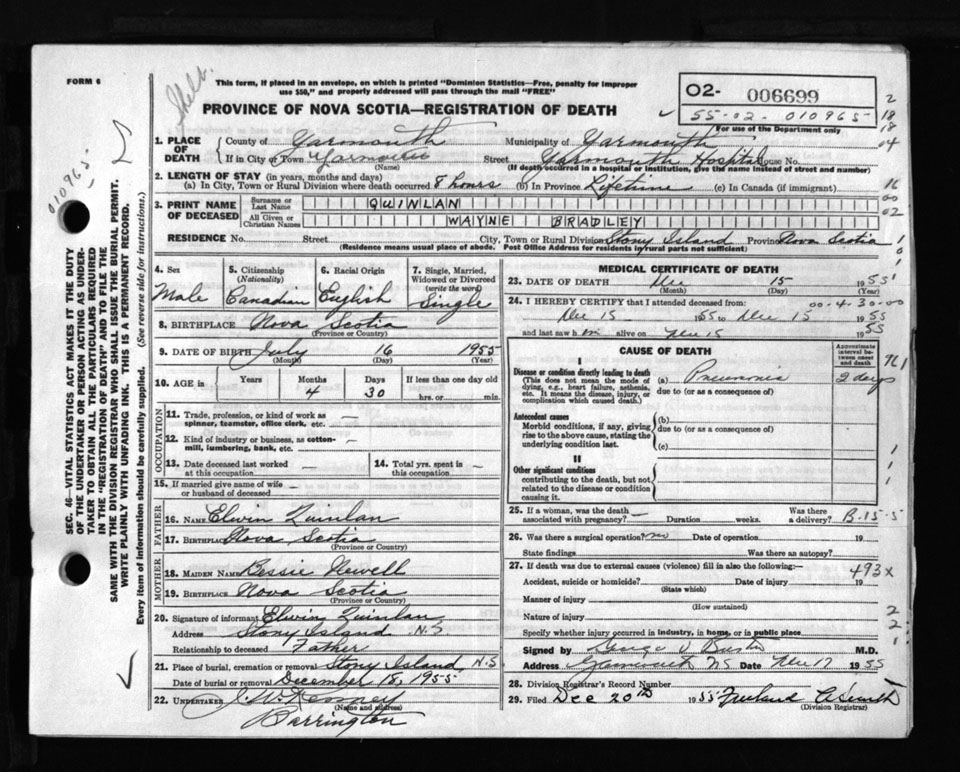 FORM 6
Shelb.
This form, if placed in an envelope, on which is printed "Dominion Statistics—Free, penalty for improper
use $50," and properly addressed will pass through the mail "FREE"
PROVINCE OF NOVA SCOTIA—REGISTRATION OF DEATH
O2- 006699
55-02-010965
For use of the Department only
2
18
18
04
16
00
02
1
0
1
010965
SEC. 46—VITAL STATISTICS ACT MAKES IT THE DUTY
OF THE UNDERTAKER OR PERSON ACTING AS UNDER-
TAKER TO OBTAIN ALL THE PARTICULARS REQUIRED
IN THE "REGISTRATION OF DEATH" AND TO FILE THE
SAME WITH THE DIVISION REGISTRAR WHO SHALL ISSUE THE BURIAL PERMIT.
WRITE PLAINLY WITH UNFADING INK. THIS IS A PERMANENT RECORD.
Every item of information should be carefully supplied. (See reverse side for instructions.)
1. PLACE OF DEATH County of Yarmouth Municipality of Yarmouth
If in City or Town Yarmouth Street Yarmouth Hospital House No.
(Name) (If death occurred in a hospital or institution, give the name instead of street and number)
2. LENGTH OF STAY (in years, months and days)
(a) In City, Town or Rural Division where death occurred 8 hours (b) In Province Lifetime (c) In Canada (if immigrant)
3. PRINT NAME OF DECEASED Surname or Last Name QUINLAN
All Given or Christian Names WAYNE BRADLEY
RESIDENCE No. Street City, Town or Rural Division Stony Island Province Nova Scotia
(Residence means usual place of abode. Post Office Address for residents in rural parts not sufficient)
4. Sex Male
5. Citizenship (Nationality) Canadian
6. Racial Origin English
7. Single, Married, Widowed or Divorced (write the word) Single
8. BIRTHPLACE Nova Scotia
(Province or Country)
9. DATE OF BIRTH July 16 1955
(Month) (Day) (Year)
10. AGE in Years Months 4 Days 30 If less than one day old
hrs. or min.
OCCUPATION
11. Trade, profession, or kind of work as
spinner, teamster, office clerk, etc. —
12. Kind of industry or business, as cotton-
mill, lumbering, bank, etc. —
13. Date deceased last worked
at this occupation —
14. Total yrs. spent in
this occupation —
15. If married give name of wife
or husband of deceased —
FATHER
16. NAME Elwin Quinlan
17. BIRTHPLACE Nova Scotia
(Province or Country)
MOTHER
18. MAIDEN NAME Bessie Newell
19. BIRTHPLACE Nova Scotia
(Province or Country)
20. Signature of informant Elwin Quinlan
Address Stony Island N.S
Relationship to deceased Father
21. Place of burial, cremation or removal Stony Island, N.S
Date of burial or removal December 18, 1955
22. UNDERTAKER
(Name and address)
Barrington
MEDICAL CERTIFICATE OF DEATH
23. DATE OF DEATH Dec 15 1955
(Month) (Day) (Year)
24. I HEREBY CERTIFY that I attended deceased from 00-4-30-00
Dec 15 1955 to Dec 15 1955
and last saw him alive on Dec 15 1955
CAUSE OF DEATH
Approximate interval between onset and death
I
Disease or condition directly leading to death
(This does not mean the mode of
dying, e.g., heart failure, asthenia,
etc. It means the disease, injury, or
complication which caused death.)
(a) Pneumonia 2 days
due to (or as a consequence of)
Antecedent causes
Morbid conditions, if any, giving
rise to the above cause, stating the
underlying condition last.
(b)
due to (or as a consequence of)
(c)
II
Other significant conditions
contributing to the death, but not
related to the disease or condition
causing it.
1
1
1
25. If a woman, was the death
associated with pregnancy? — Duration weeks. Was there
a delivery? B-15-5
26. Was there a surgical operation? no Date of operation 19
State findings Was there an autopsy?
27. If death was due to external causes (violence) fill in also the following:— 493x
Accident, suicide or homicide? Date of injury 19
(State which)
Manner of injury
(How sustained)
Nature of injury
2
2
1
Specify whether injury occurred in industry, in home, or in public place
Signed by M.D.
Address Yarmouth NS Date Dec 17 1955
28. Division Registrar's Record Number
29. Filed Dec 20th 1955
(Division Registrar)